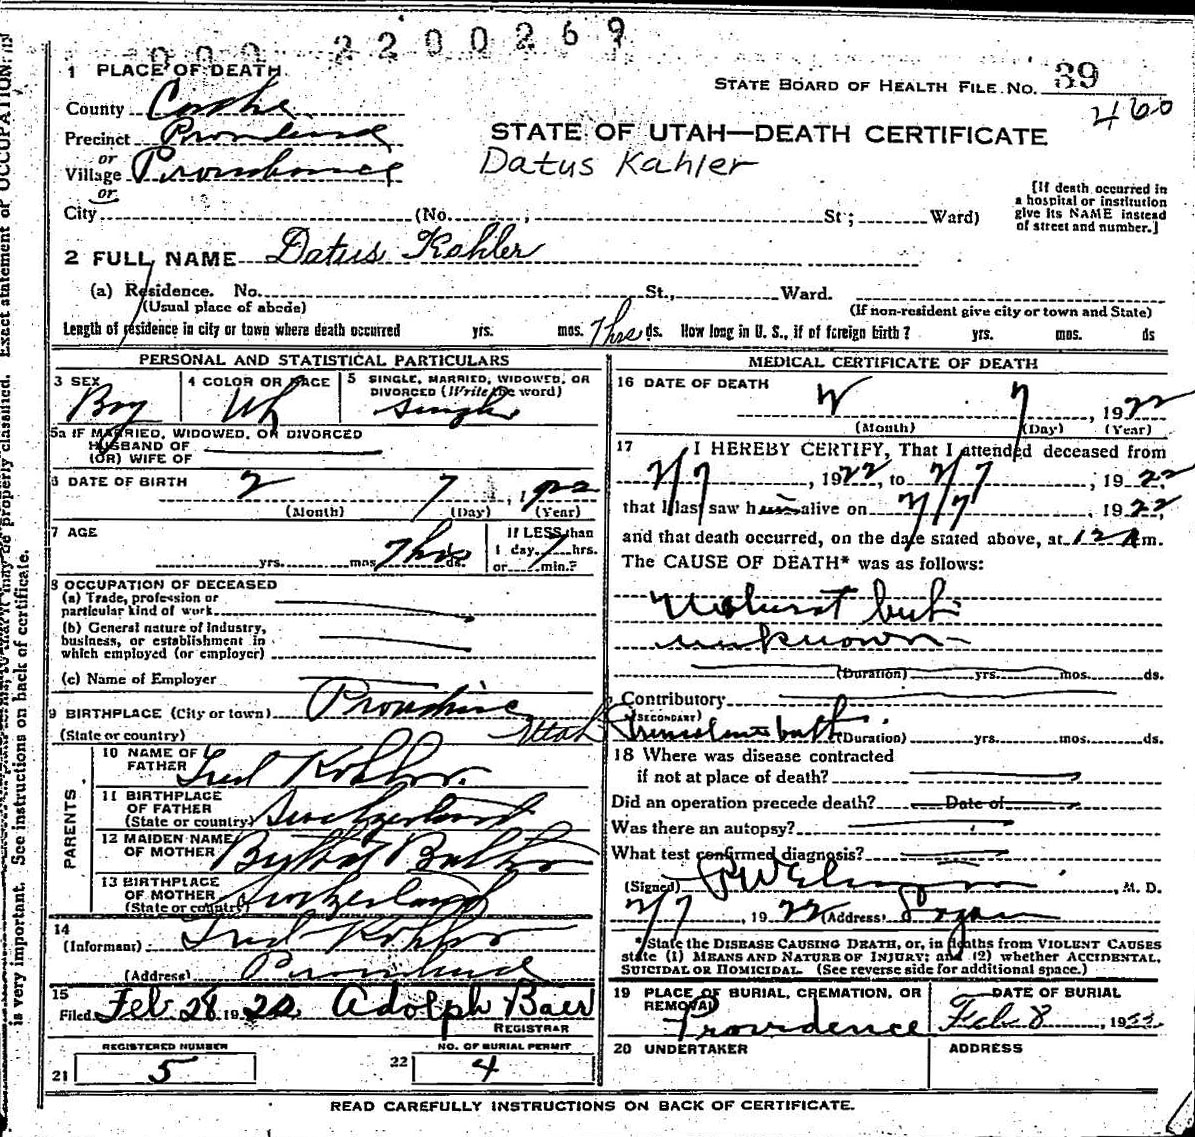 000 2200269
1 PLACE OF DEATH
STATE BOARD OF HEALTH FILE NO. 39
460
County Cache
Precinct Providence
or
Village Providence
or
STATE OF UTAH—DEATH CERTIFICATE
Datus Kahler
[If death occurred in
a hospital or institution
give its NAME instead
of street and number.]
City (No. ; St; Ward)
2 FULL NAME Datus Kohler
(a) Residence. No. St., Ward.
(Usual place of abode) (If non-resident give city or town and State)
Length of residence in city or town where death occurred yrs. mos. 7 hrs ds. How long in U. S., if of foreign birth? yrs. mos. ds
PERSONAL AND STATISTICAL PARTICULARS
3 SEX Boy
4 COLOR OR RACE Wh
5 SINGLE, MARRIED, WIDOWED, OR
DIVORCED (Write the word)
Single
5a IF MARRIED, WIDOWED, OR DIVORCED
HUSBAND OF
(OR) WIFE OF
6 DATE OF BIRTH 2 7, 1922
(Month) (Day) (Year)
7 AGE yrs. mos. 7 hrs ds.
If LESS than
1 day, 7 hrs.
or min.?
8 OCCUPATION OF DECEASED
(a) Trade, profession or
particular kind of work
(b) General nature of industry,
business, or establishment in
which employed (or employer)
(c) Name of Employer
9 BIRTHPLACE (City or town) Providence
(State or country) Utah
PARENTS
10 NAME OF
FATHER Fred Kohler
11 BIRTHPLACE
OF FATHER
(State or country) Switzerland
12 MAIDEN NAME
OF MOTHER
13 BIRTHPLACE
OF MOTHER
(State or country) Switzerland
14
(Informant) Fred Kohler
(Address) Providence
15
Filed Feb 28 1922 Adolph Baer
REGISTRAR
REGISTERED NUMBER
21 5
NO. OF BURIAL PERMIT
22 4
MEDICAL CERTIFICATE OF DEATH
16 DATE OF DEATH
2 7, 1922
(Month) (Day) (Year)
17 I HEREBY CERTIFY, That I attended deceased from
2/7, 1922, to 2/7, 1922
that I last saw him alive on 2/7, 1922,
and that death occurred, on the date stated above, at 12 A m.
The CAUSE OF DEATH* was as follows:
unknown
(Duration) yrs. mos. ds.
Contributory
(SECONDARY)
Premature birth (Duration) yrs. mos. ds.
18 Where was disease contracted
if not at place of death?
Did an operation precede death? Date of
Was there an autopsy?
What test confirmed diagnosis?
(Signed) , M. D.
2/7, 1922 (Address) Logan
*State the DISEASE CAUSING DEATH, or, in deaths from VIOLENT CAUSES
state (1) MEANS AND NATURE OF INJURY; and (2) whether ACCIDENTAL,
SUICIDAL OR HOMICIDAL. (See reverse side for additional space.)
19 PLACE OF BURIAL, CREMATION, OR
REMOVAL
Providence
DATE OF BURIAL
Feb 8, 1922
20 UNDERTAKER
ADDRESS
READ CAREFULLY INSTRUCTIONS ON BACK OF CERTIFICATE.
may be properly classified. Exact statement of OCCUPATION
is very important. See instructions on back of certificate.